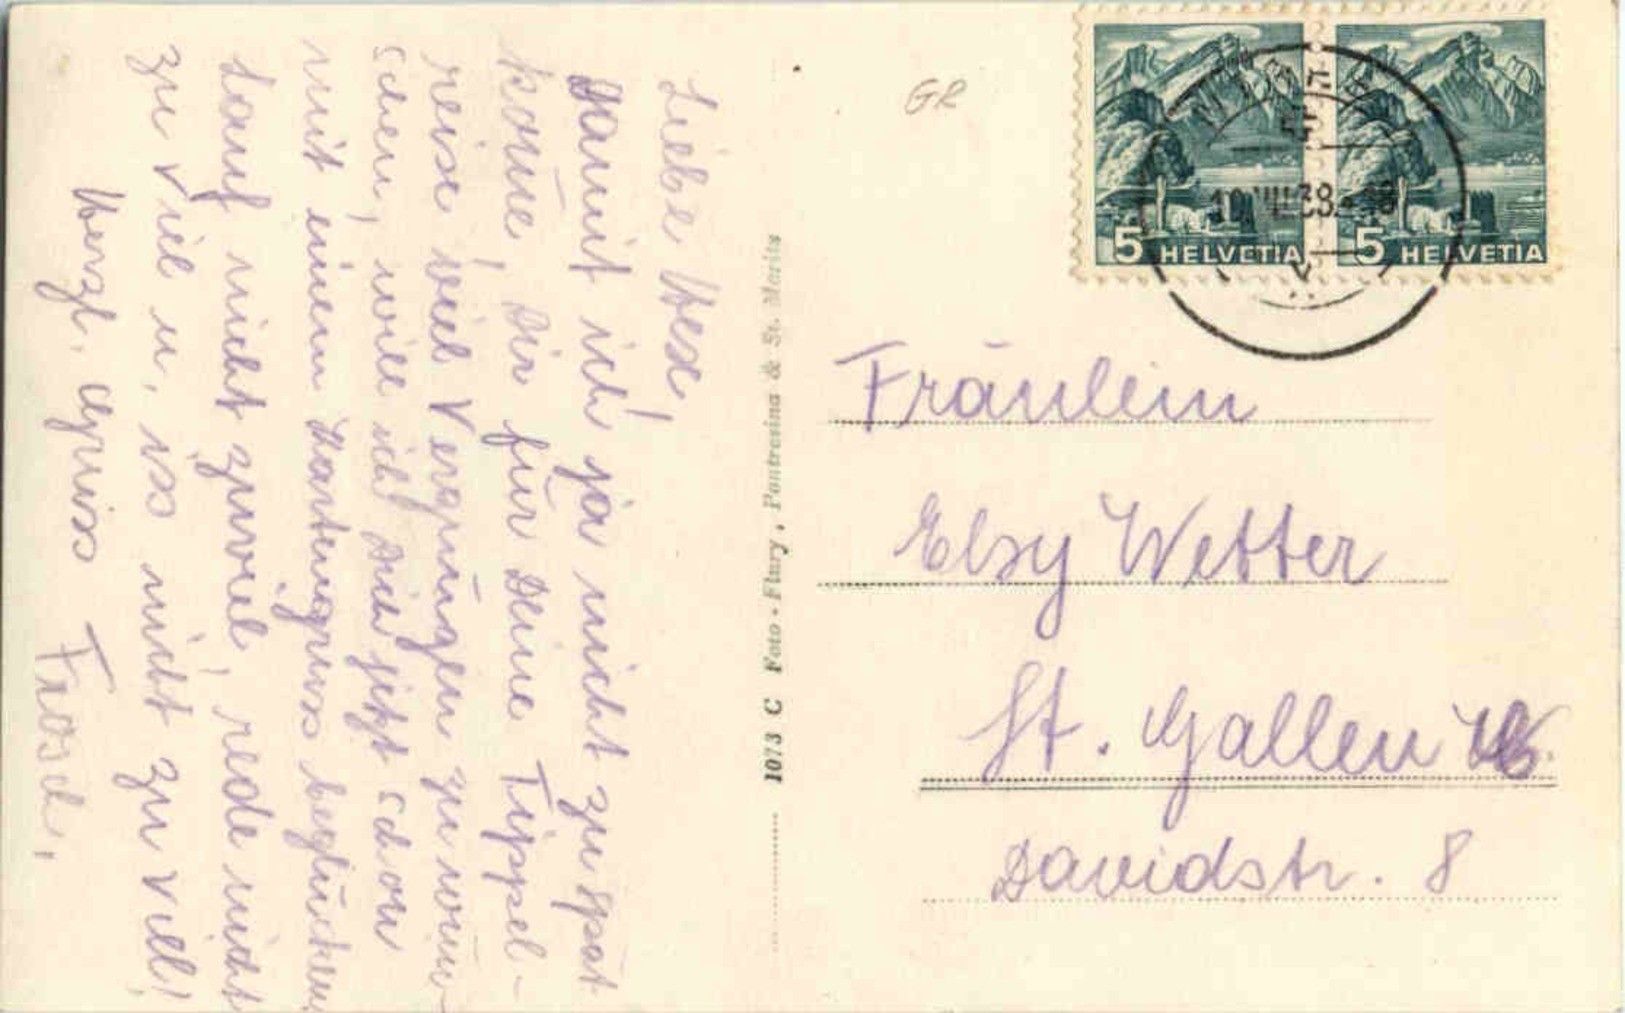 Liebe Hexe!
Damit ich ja nicht zu spät
kome, Dir für Deine Tippel-
reise viel Vergnügen zu wün-
schen, will ich Dich jetzt schon
mit einem Kartengruss beglücken
Lauf nicht zuviel, rede nicht
zu viel u. iss nicht zu viel!
Herzl. Gruss Frosch,
1073 C Foto - Flury, Pontresina & St. Moritz
GR
5 HELVETIA
5 HELVETIA
VIII 38
Fräulein
Elsy Wetter
St. Gallen W.
Davidstr. 8